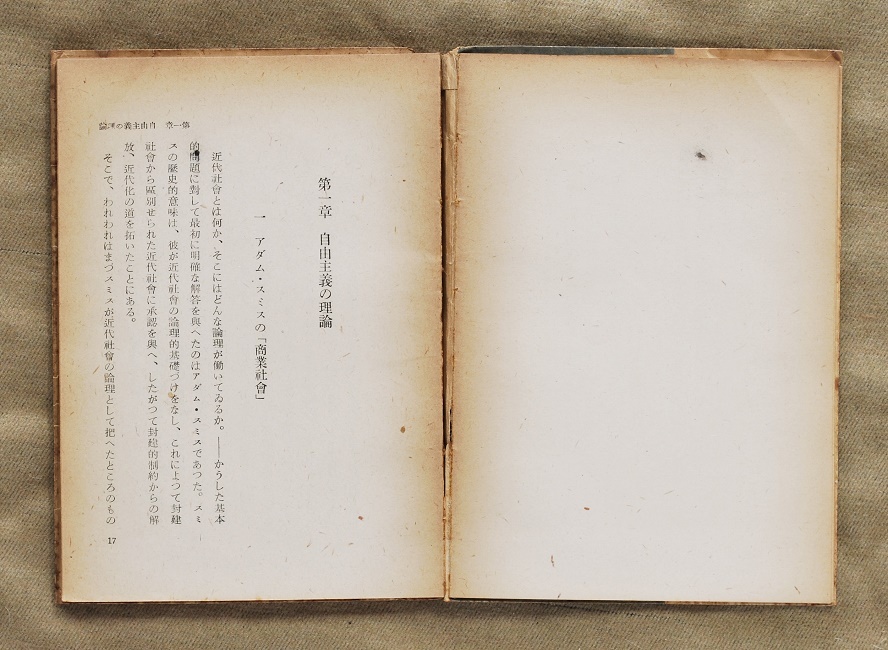 第一章　自由主義の理論
第一章　自由主義の理論
一　アダム・スミスの「商業社會」
近代社會とは何か、そこにはどんな論理が働いてゐるか。――かうした基本
的問題に對して最初に明確な解答を與へたのはアダム・スミスであつた。スミ
スの歴史的意味は、彼が近代社會の論理的基礎づけをなし、これによつて封建
社會から區別せられた近代社會に承認を與へ、したがつて封建的制約からの解
放、近代化の道を拓いたことにある。
そこで、われわれはまづスミスが近代社會の論理として把へたところのもの
17